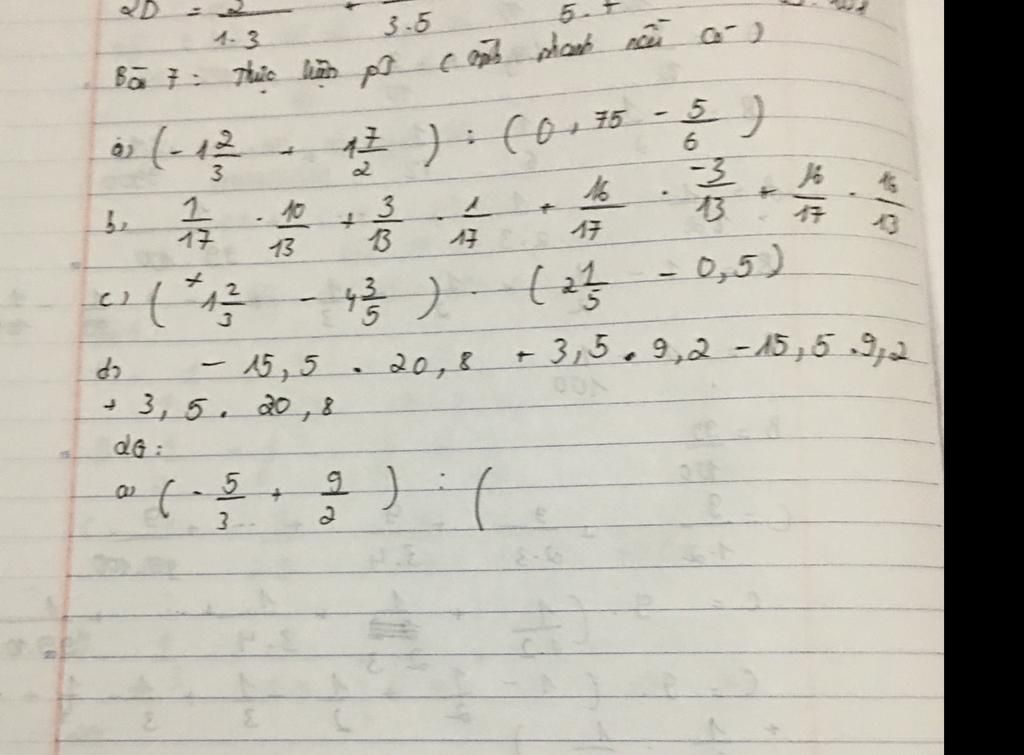 2D = 2/1.3 + /3.5 5.7
Bài 7: Thực hiện pT (tính nhanh nếu có)
a) (-1 2/3 + 1 7/2) : (0,75 - 5/6)
b, 1/17 . 10/13 + 3/13 . 1/17 + 16/17 . -3/13 + 16/17 . 16/13
c) (+1 2/3 - 4 3/5) . (2 1/5 - 0,5)
d) - 15,5 . 20,8 + 3,5 . 9,2 - 15,5 . 9,2
+ 3,5 . 20,8
dG:
a) (-5/3 + 9/2) : (